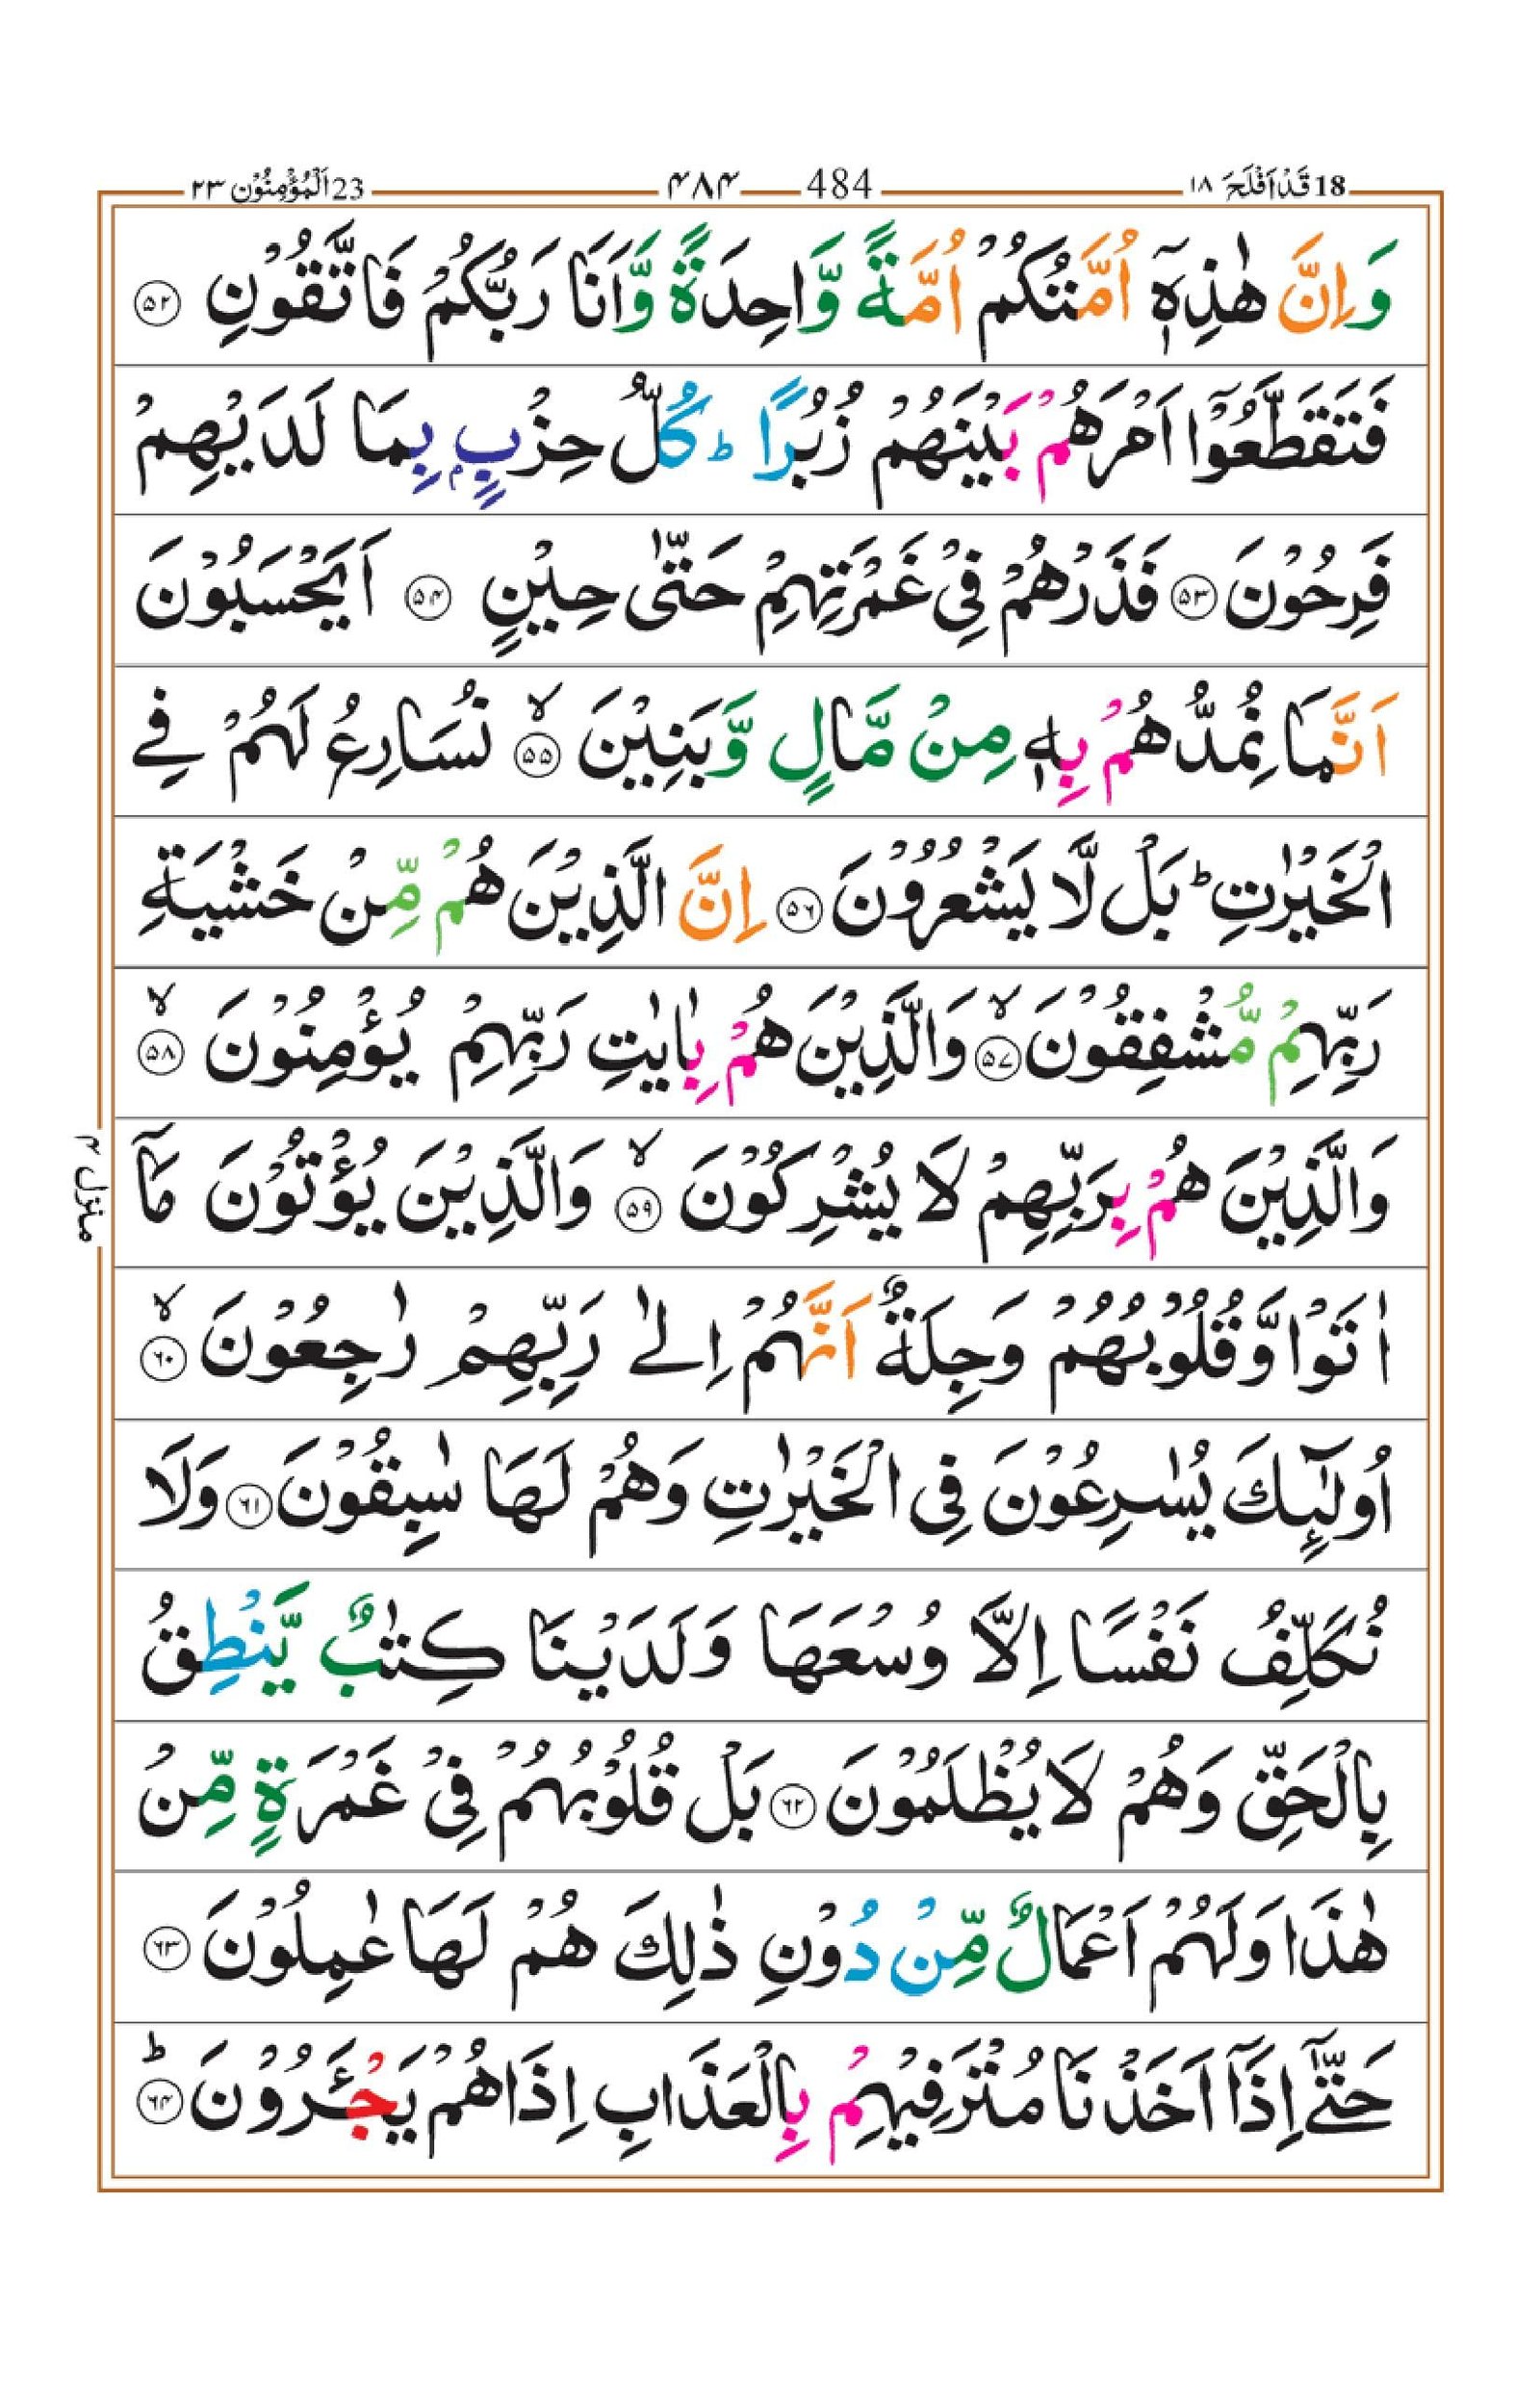 18 قَدْ اَفْلَحَ ۱۸ 484 ۴۸۴ 23 اَلْمُؤْمِنُوْن ۲۳
وَاِنَّ هٰذِهٖۤ اُمَّتُكُمْ اُمَّةً وَّاحِدَةً وَّاَنَا رَبُّكُمْ فَاتَّقُوْنِ ﴿۵۲﴾
فَتَقَطَّعُوْۤا اَمْرَهُمْ بَيْنَهُمْ زُبُرًا ؕ كُلُّ حِزْبٍۭ بِمَا لَدَيْهِمْ
فَرِحُوْنَ ﴿۵۳﴾ فَذَرْهُمْ فِيْ غَمْرَتِهِمْ حَتّٰى حِيْنٍ ﴿۵۴﴾ اَيَحْسَبُوْنَ
اَنَّمَا نُمِدُّهُمْ بِهٖ مِنْ مَّالٍ وَّبَنِيْنَ ۙ﴿۵۵﴾ نُسَارِعُ لَهُمْ فِي
الْخَيْرٰتِ ؕ بَلْ لَّا يَشْعُرُوْنَ ﴿۵۶﴾ اِنَّ الَّذِيْنَ هُمْ مِّنْ خَشْيَةِ
رَبِّهِمْ مُّشْفِقُوْنَ ۙ﴿۵۷﴾ وَالَّذِيْنَ هُمْ بِاٰيٰتِ رَبِّهِمْ يُؤْمِنُوْنَ ۙ﴿۵۸﴾
وَالَّذِيْنَ هُمْ بِرَبِّهِمْ لَا يُشْرِكُوْنَ ۙ﴿۵۹﴾ وَالَّذِيْنَ يُؤْتُوْنَ مَاۤ
اٰتَوْا وَّقُلُوْبُهُمْ وَجِلَةٌ اَنَّهُمْ اِلٰى رَبِّهِمْ رٰجِعُوْنَ ۙ﴿۶۰﴾
اُولٰٓئِكَ يُسٰرِعُوْنَ فِي الْخَيْرٰتِ وَهُمْ لَهَا سٰبِقُوْنَ ﴿۶۱﴾ وَلَا
نُكَلِّفُ نَفْسًا اِلَّا وُسْعَهَا وَلَدَيْنَا كِتٰبٌ يَّنْطِقُ
بِالْحَقِّ وَهُمْ لَا يُظْلَمُوْنَ ﴿۶۲﴾ بَلْ قُلُوْبُهُمْ فِيْ غَمْرَةٍ مِّنْ
هٰذَا وَلَهُمْ اَعْمَالٌ مِّنْ دُوْنِ ذٰلِكَ هُمْ لَهَا عٰمِلُوْنَ ﴿۶۳﴾
حَتّٰۤى اِذَاۤ اَخَذْنَا مُتْرَفِيْهِمْ بِالْعَذَابِ اِذَا هُمْ يَجْـَٔرُوْنَ ؕ﴿۶۴﴾
منزل ۴